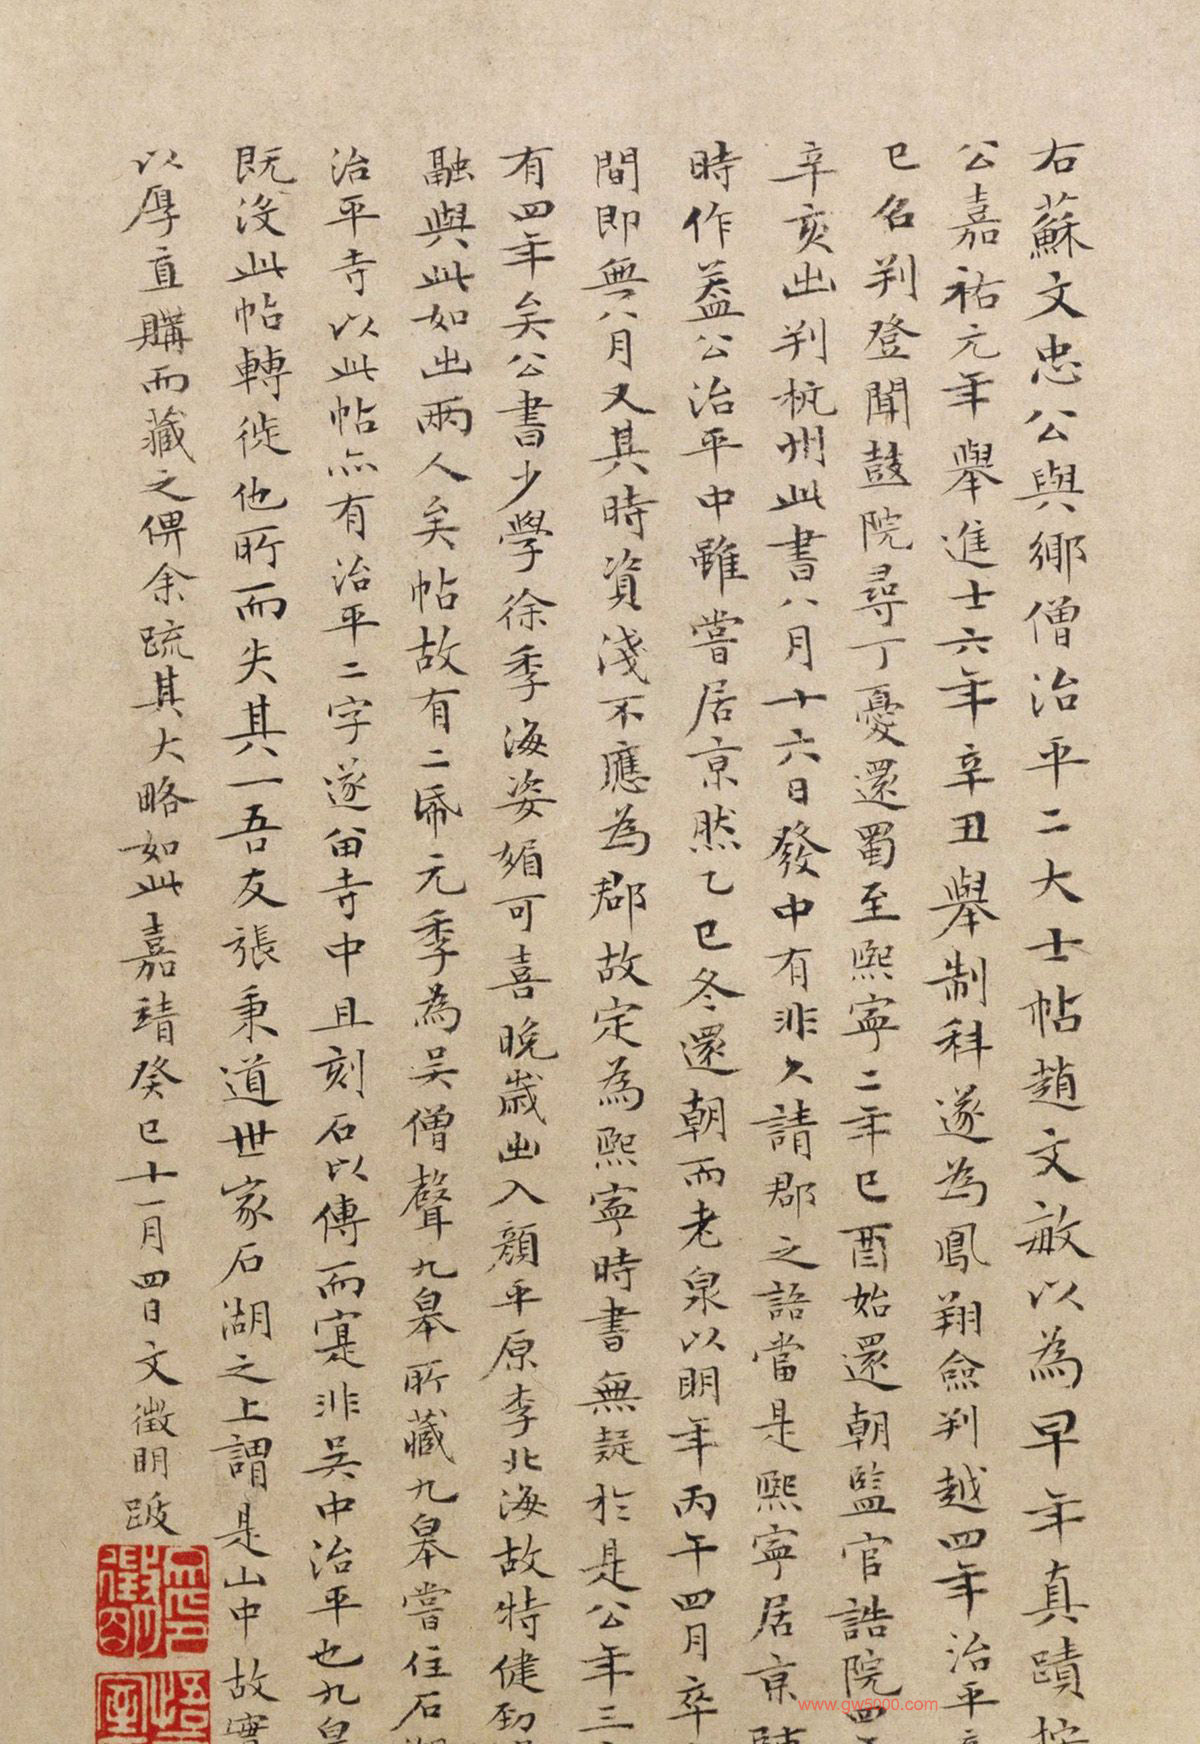 右蘇文忠公與鄉僧治平二大士帖趙文敏以為早年真蹟按
公嘉祐元年舉進士六年辛丑舉制科遂為鳳翔僉判越四年治平
巳名判登聞鼓院尋丁憂還蜀至熙寧二年巳酉始還朝監官誥院四
辛亥出判杭州此書八月十六日發中有非久請郡之語當是熙寧居京
時作蓋公治平中雖嘗居京然乙巳冬還朝而老泉以明年丙午四月卒
間即無八月又其時資淺不應為郡故定為熙寧時書無疑於是公年三
有四年矣公書少學徐季海姿媚可喜晚歲出入顏平原李北海故特健勁
融與此如出兩人矣帖故有二帋元季為吳僧聲九皋所藏九皋嘗住石湖
治平寺以此帖亦有治平二字遂留寺中且刻石以傳而寔非吳中治平也九皋
既沒此帖轉徙他所而失其一吾友張秉道世家石湖之上謂是山中故實
以厚直購而藏之俾余疏其大略如此嘉靖癸巳十一月四日文徵明跋
www.gw5000.com